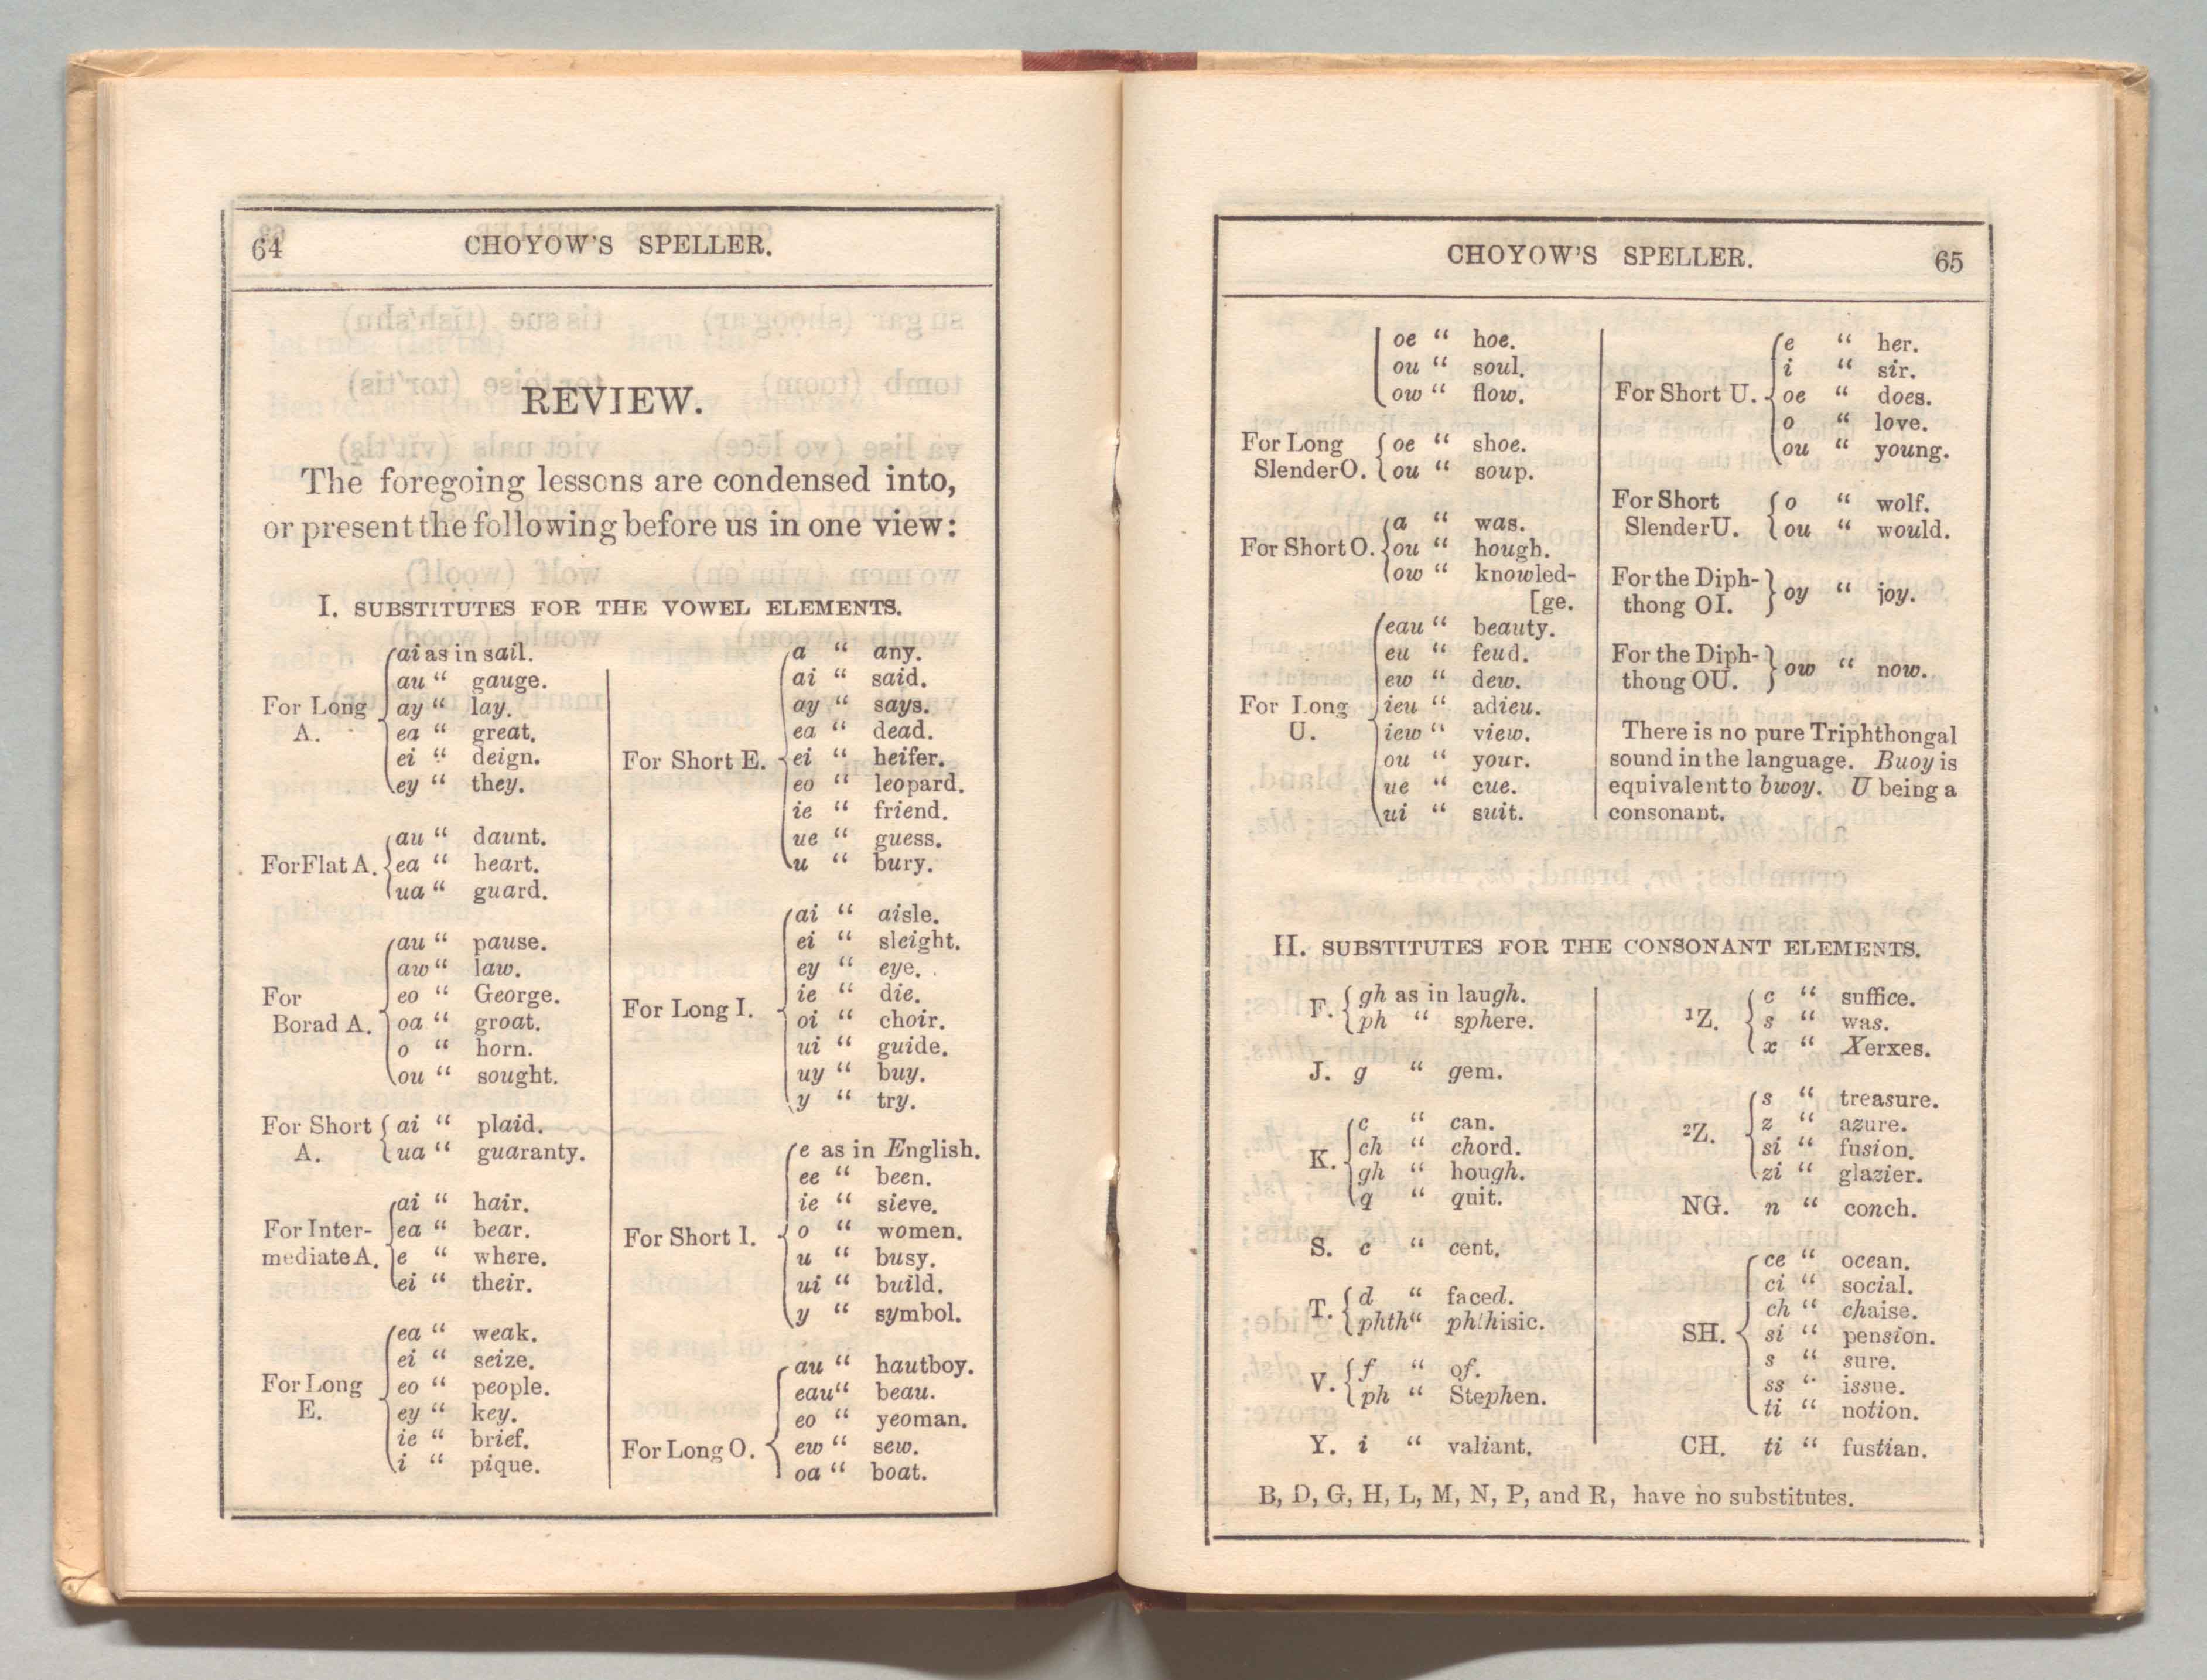 64 CHOYOW'S SPELLER.
REVIEW.
The foregoing lessons are condensed into,
or present the following before us in one view:
I. SUBSTITUTES FOR THE VOWEL ELEMENTS.
For Long A.
ai as in sail.
au “ gauge.
ay “ lay.
ea “ great.
ei “ deign.
ey “ they.
For Flat A.
au “ daunt.
ea “ heart.
ua “ guard.
For
Borad A.
au “ pause.
aw “ law.
eo “ George.
oa “ groat.
o “ horn.
ou “ sought.
For Short
A.
ai “ plaid.
ua “ guaranty.
For Inter-
mediate A.
ai “ hair.
ea “ bear.
e “ where.
ei “ their.
For Long
E.
ea “ weak.
ei “ seize.
eo “ people.
ey “ key.
ie “ brief.
i “ pique.
For Short E.
a “ any.
ai “ said.
ay “ says.
ea “ dead.
ei “ heifer.
eo “ leopard.
ie “ friend.
ue “ guess.
u “ bury.
For Long I.
ai “ aisle.
ei “ sleight.
ey “ eye.
ie “ die.
oi “ choir.
ui “ guide.
uy “ buy.
y “ try.
For Short I.
e as in English.
ee “ been.
ie “ sieve.
o “ women.
u “ busy.
ui “ build.
y “ symbol.
For Long O.
au “ hautboy.
eau “ beau.
eo “ yeoman.
ew “ sew.
oa “ boat.
CHOYOW'S SPELLER. 65
oe “ hoe.
ou “ soul.
ow “ flow.
For Long
Slender O.
oe “ shoe.
ou “ soup.
For Short O.
a “ was.
ou “ hough.
ow “ knowled-
[ge.
For Long
U.
eau “ beauty.
eu “ feud.
ew “ dew.
ieu “ adieu.
iew “ view.
ou “ your.
ue “ cue.
ui “ suit.
For Short U.
e “ her.
i “ sir.
oe “ does.
o “ love.
ou “ young.
For Short
Slender U.
o “ wolf.
ou “ would.
For the Diph-
thong OI.
oy “ joy.
For the Diph-
thong OU.
ow “ now.
There is no pure Triphthongal
sound in the language. Buoy is
equivalent to bwoy. U being a
consonant.
II. SUBSTITUTES FOR THE CONSONANT ELEMENTS.
F.
gh as in laugh.
ph “ sphere.
J. g “ gem.
K.
c “ can.
ch “ chord.
gh “ hough.
q “ quit.
S. c “ cent.
T.
d “ faced.
phth “ phthisic.
V.
f “ of.
ph “ Stephen.
Y. i “ valiant.
¹Z.
c “ suffice.
s “ was.
x “ Xerxes.
²Z.
s “ treasure.
z “ azure.
si “ fusion.
zi “ glazier.
NG. n “ conch.
SH.
ce “ ocean.
ci “ social.
ch “ chaise.
si “ pension.
s “ sure.
ss “ issue.
ti “ notion.
CH. ti “ fustian.
B, D, G, H, L, M, N, P, and R, have no substitutes.